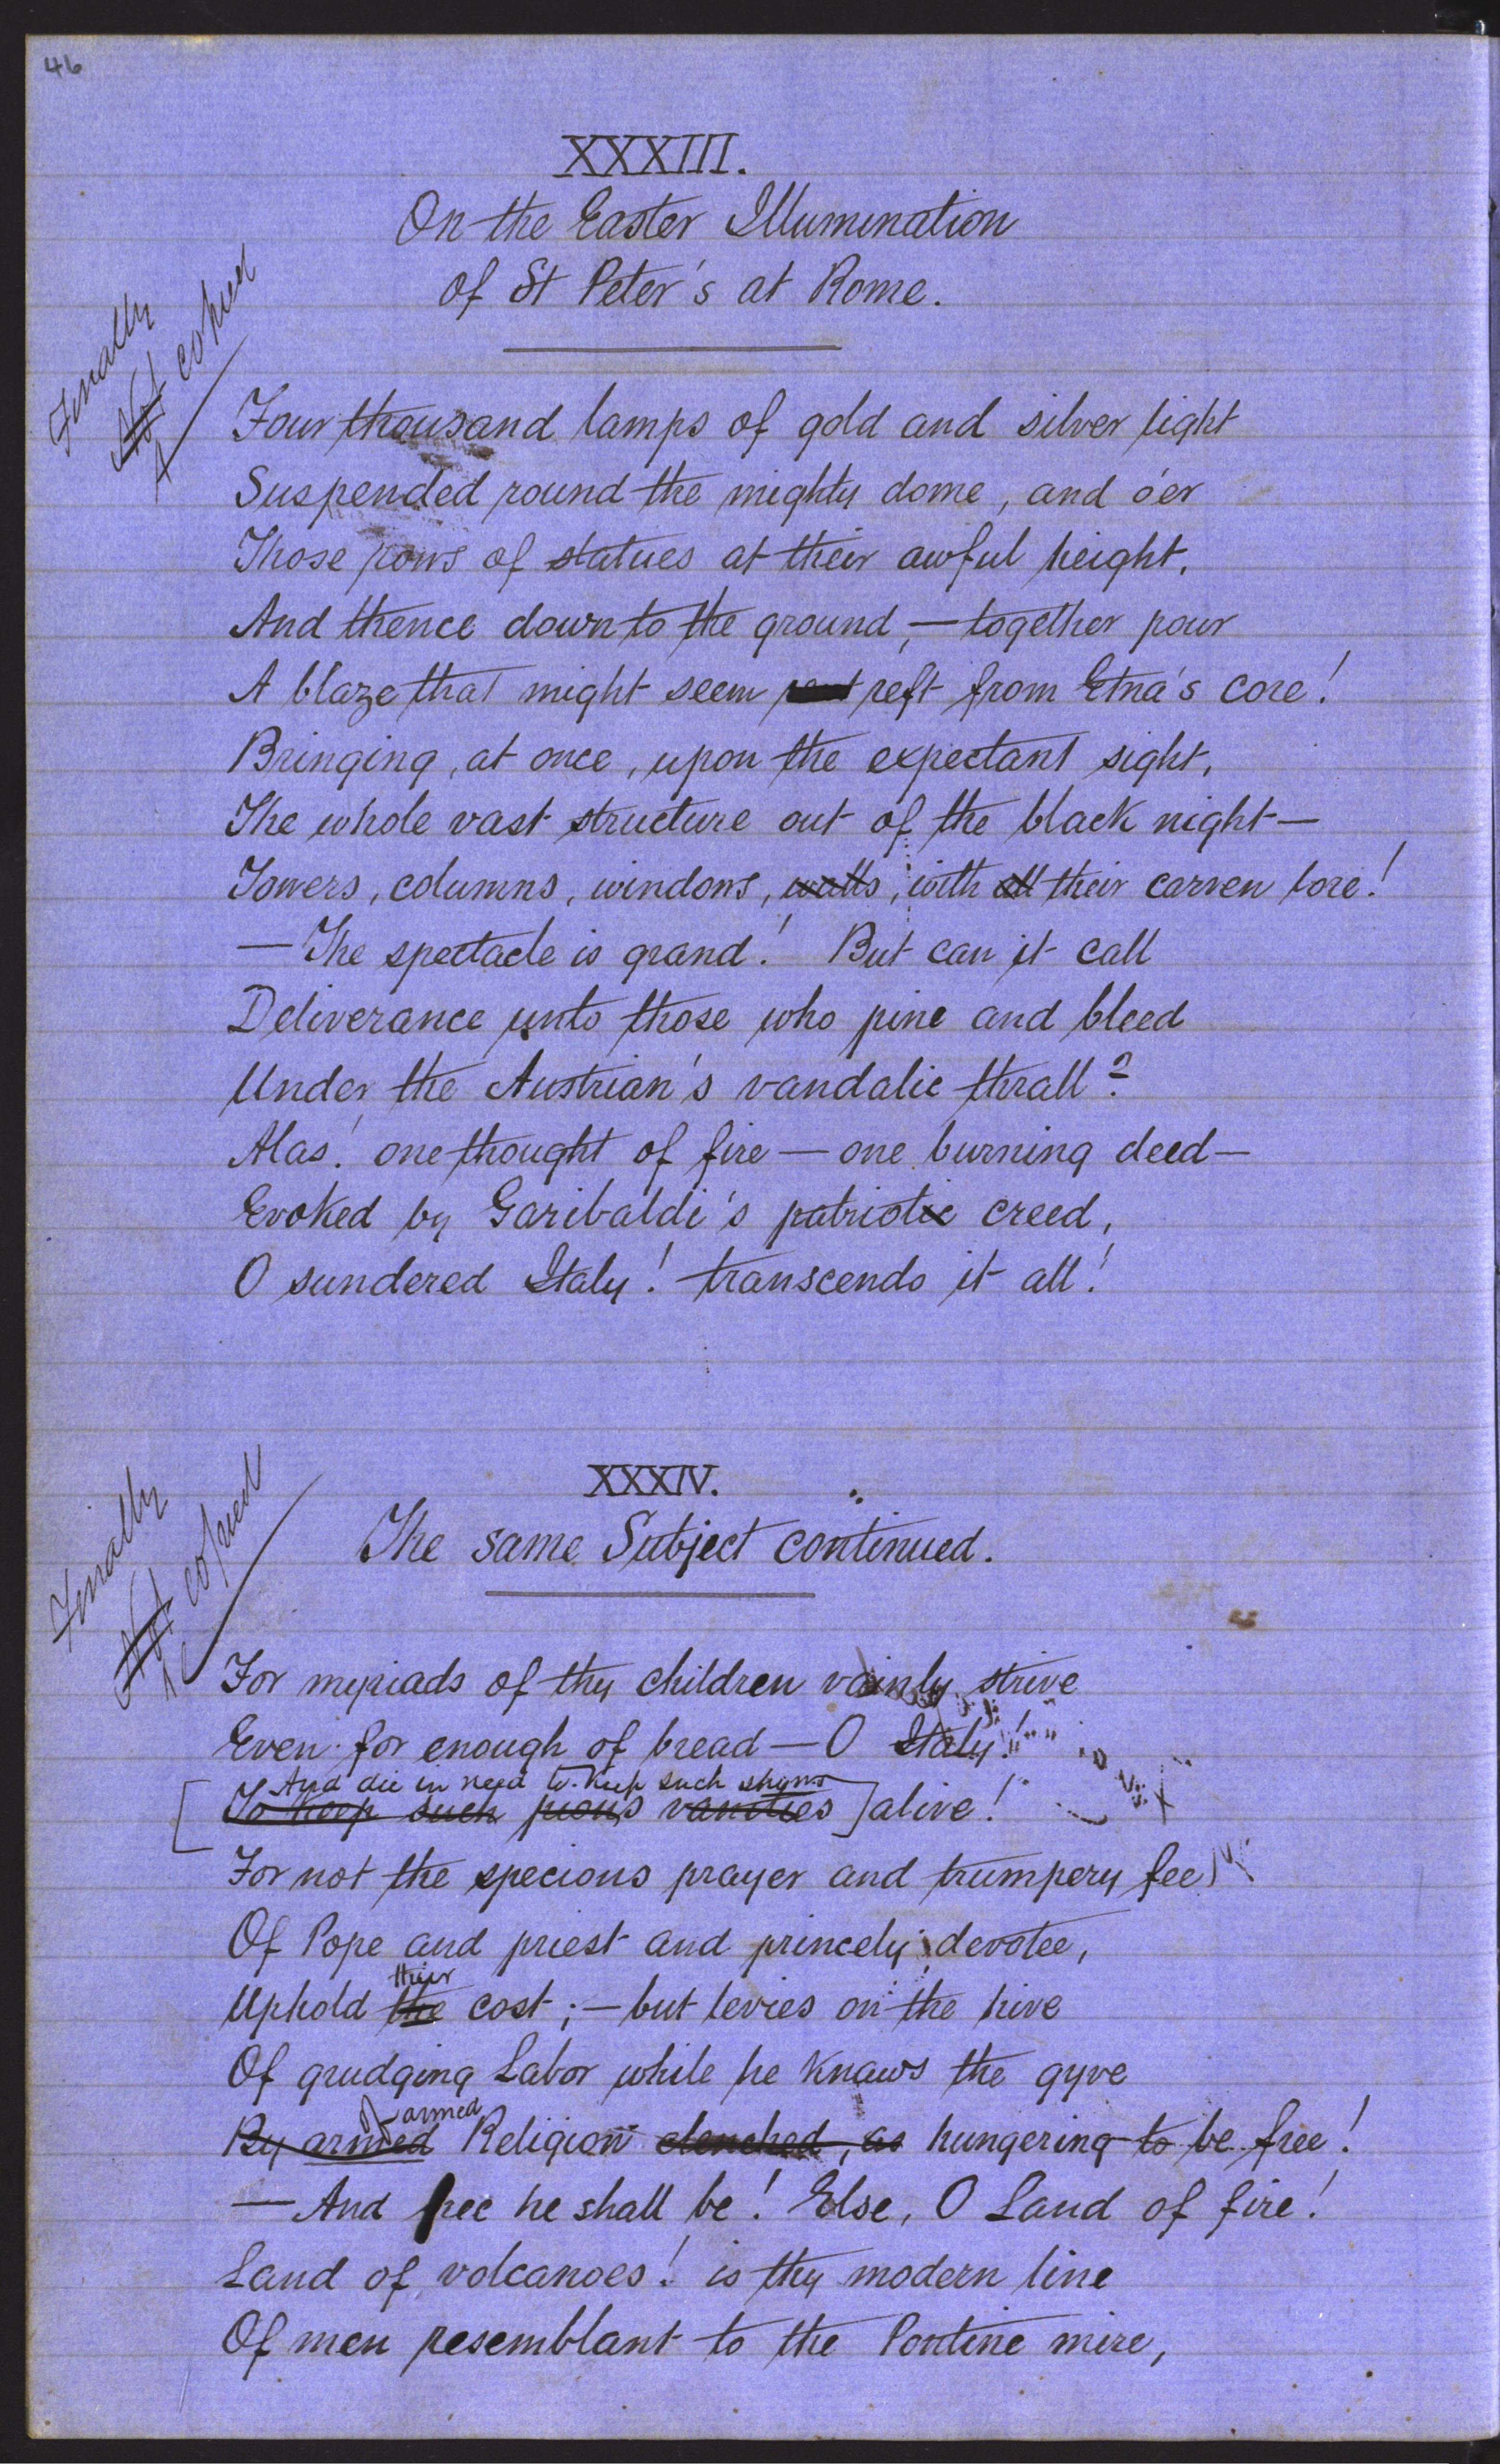 46
XXXIII.
On the Easter Illumination
of St Peter's at Rome.
Finally
Not copied
Four thousand lamps of gold and silver light
Suspended round the mighty dome, and o'er
Those rows of statues at their awful height,
And thence down to the ground,—together pour
A blaze that might seem reft from Etna's core!
Bringing, at once, upon the expectant sight,
The whole vast structure out of the black night—
Towers, columns, windows, walls, with all their carven lore!
—The spectacle is grand! But can it call
Deliverance unto those who pine and bleed
Under the Austrian's vandalic thrall?
Alas! one thought of fire—one burning deed—
Evoked by Garibaldi's patriotic creed,
O sundered Italy! transcends it all!
XXXIV.
The same Subject continued.
Finally
Not copied
For myriads of thy children vainly strive
Even for enough of bread—O Italy!
And die in need to keep such shams
[To keep such pious vanities] alive!
For not the specious prayer and trumpery fee
Of Pope and priest and princely devotee,
their
Uphold the cost;—but levies on the hive
Of grudging Labor while he knaws the gyve
armed
By armed Religion clenched, as hungering to be free!
—And free he shall be! Else, O Land of fire!
Land of volcanoes! is thy modern line
Of men resemblant to the Pontine mire,